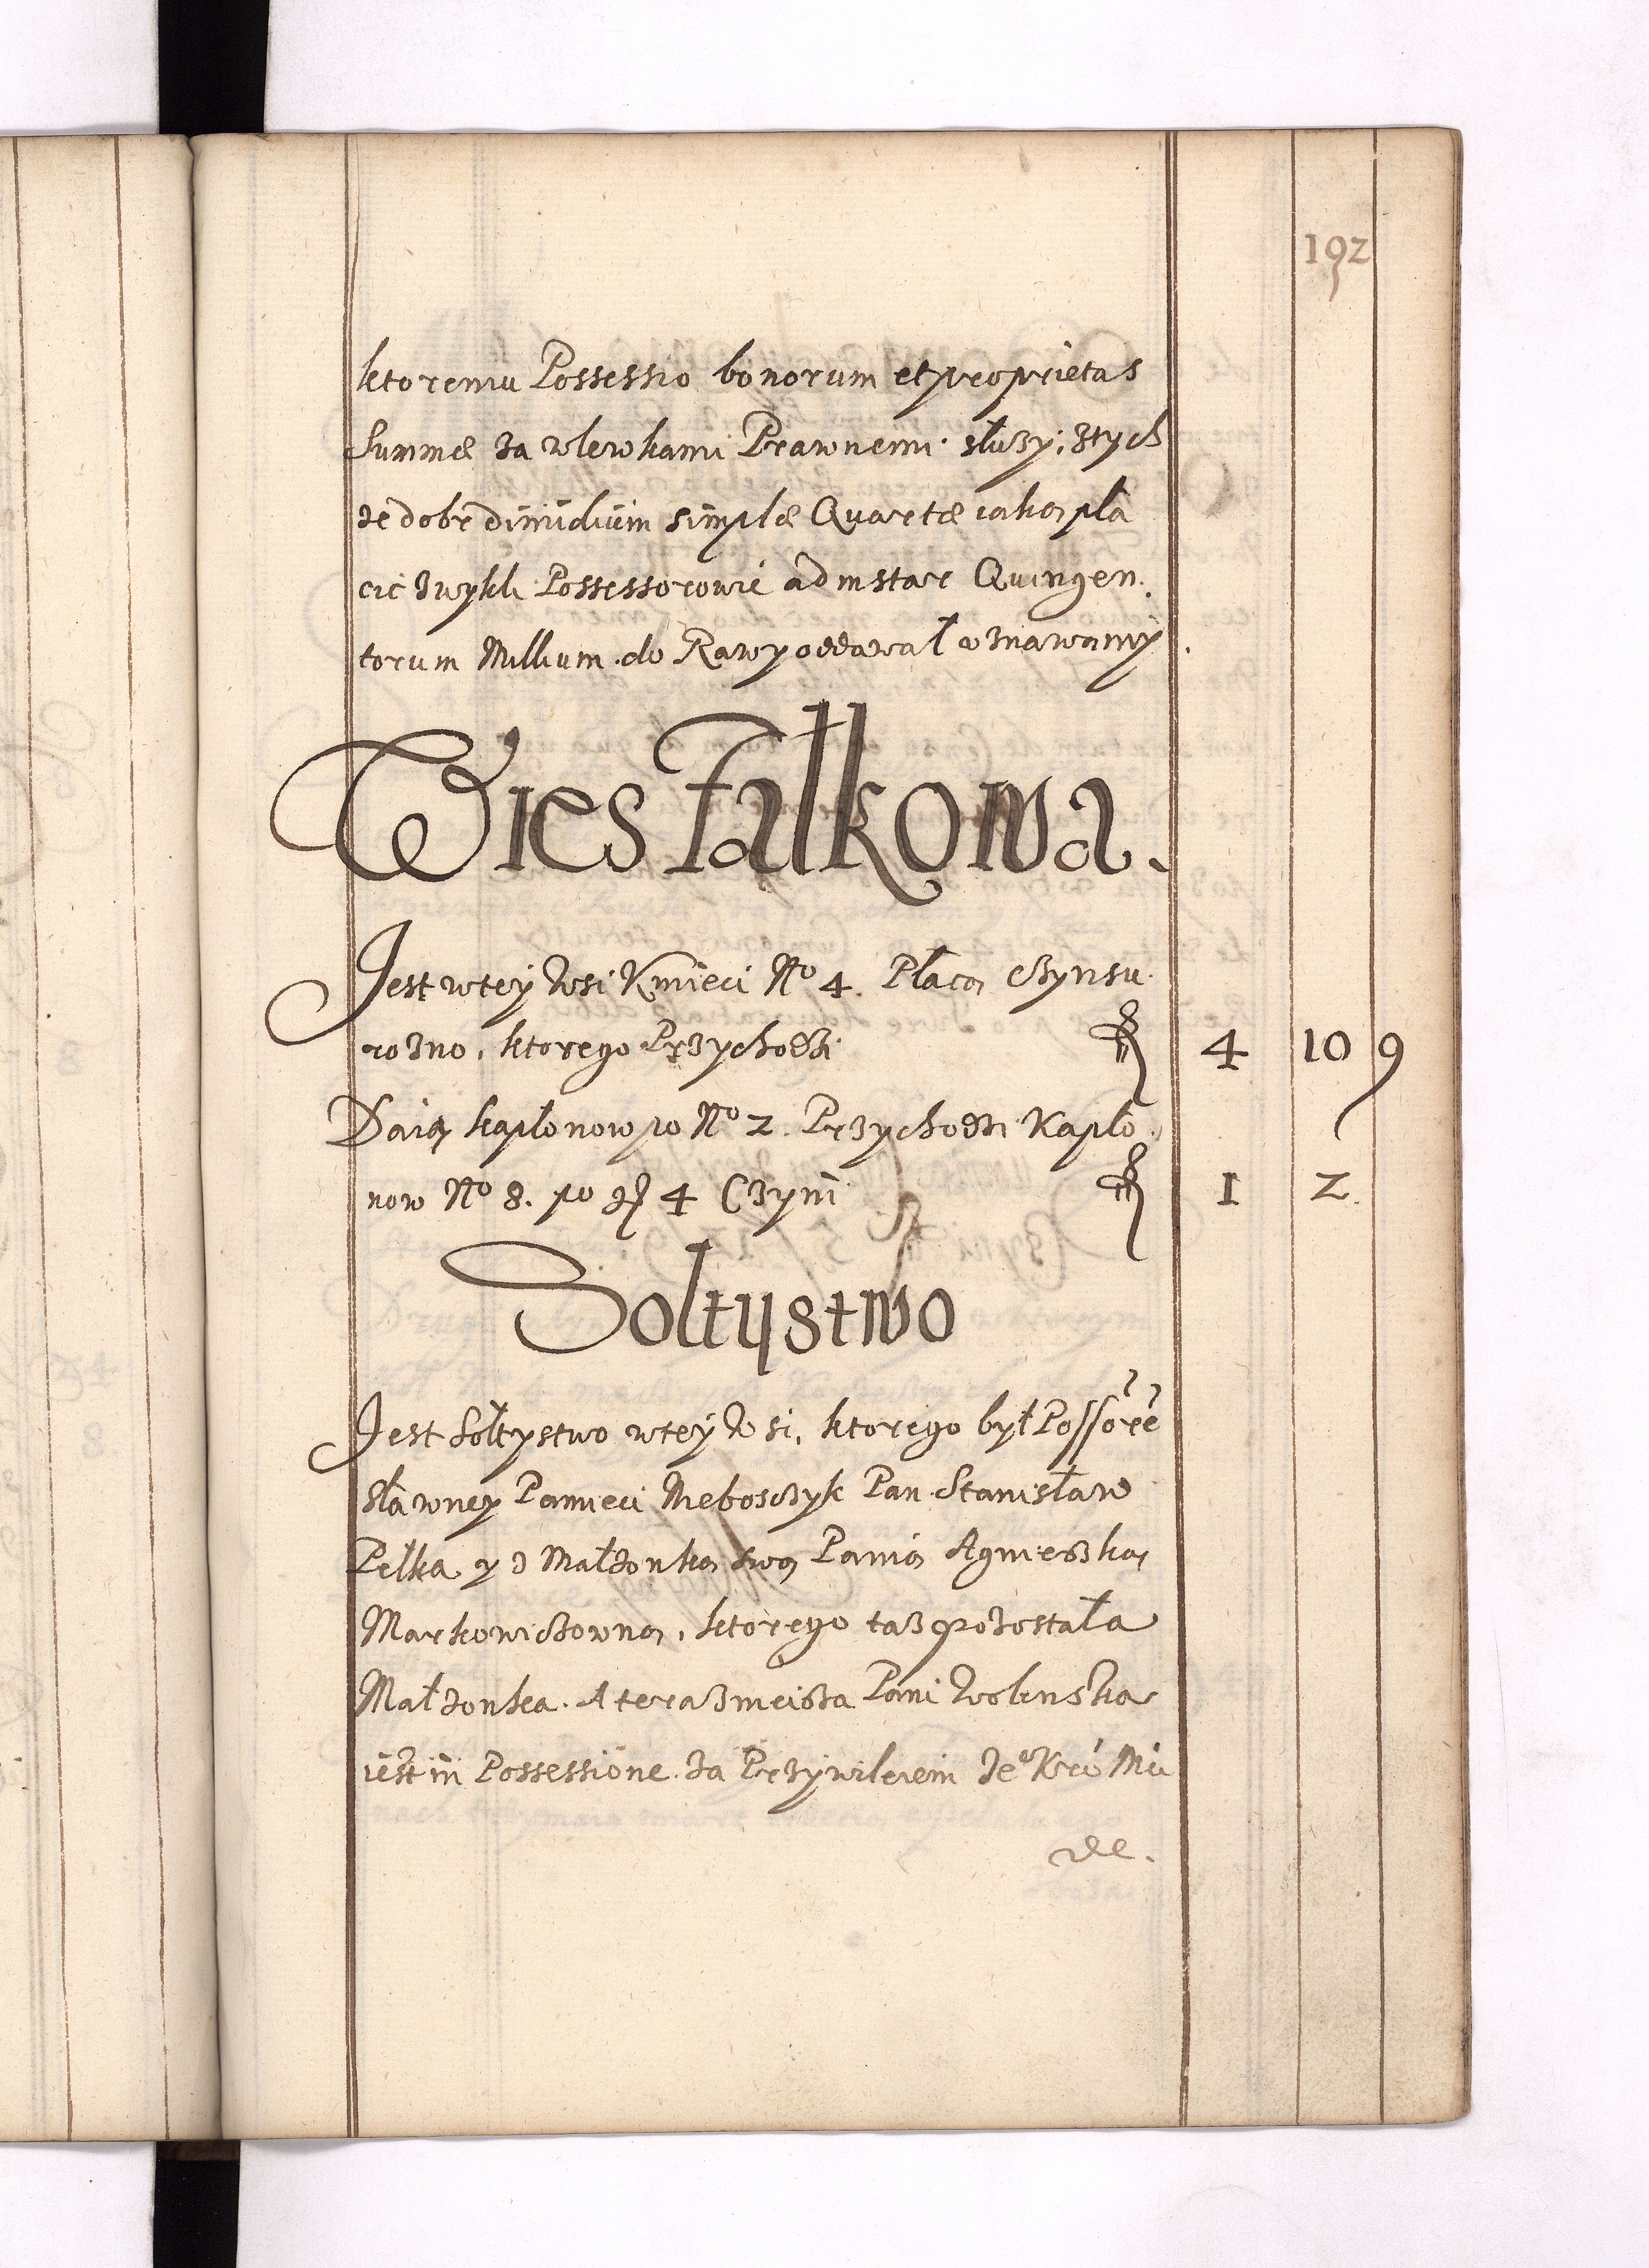 192
ktoremu Possessio bonorum et proprietas
Summæ za wlewkami Prawnemi służy, z tych
ze dobr dimidium simplæ Quartæ iaką pła
cić zwykli Possessorowie ad instar Quingen.
torum Millium do Rawy oddawał uznawamy
Wies Falkowa.
Jest w tey Wsi Kmieci No 4. Płacą Czynsu
rozno, ktorego Przychodzi fl 4 10 9
Daią kapłonow po No 2. Przychodzi Kapło
now No 8. po gr 4 Czyni fl 1 2.
Sołtystwo
Jest Sołtystwo w tey Wsi, ktorego był Possore
sławney Pamieci Nieboszczyk Pan Stanisław
Pełka y z Małzonką swą Panią Agnieszką
Markowiczowną, ktorego taz pozostała
Małzonka. A teraznieisza Pani Wolinska
iest in Possessione za Przywileiem Je° Kró Mći
de.